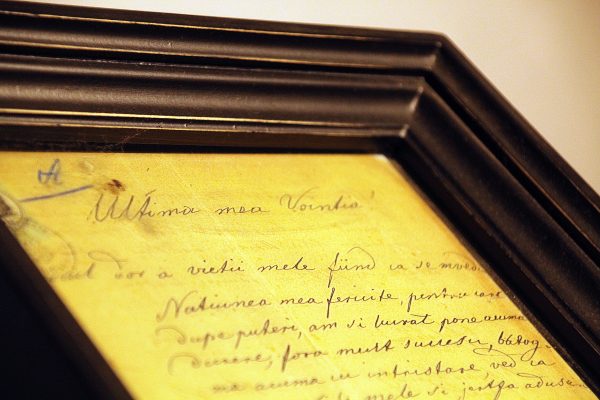 A
Ultima mea Vointia!
dor a vietii mele fiind ca se
Natiunea mea fericite, pentru care
dupe puteri, am si lucrat pone acuma
durere, fora mult succesu, ba tog
ma acuma cu intristare, ved ca
mele si jertfa adusa